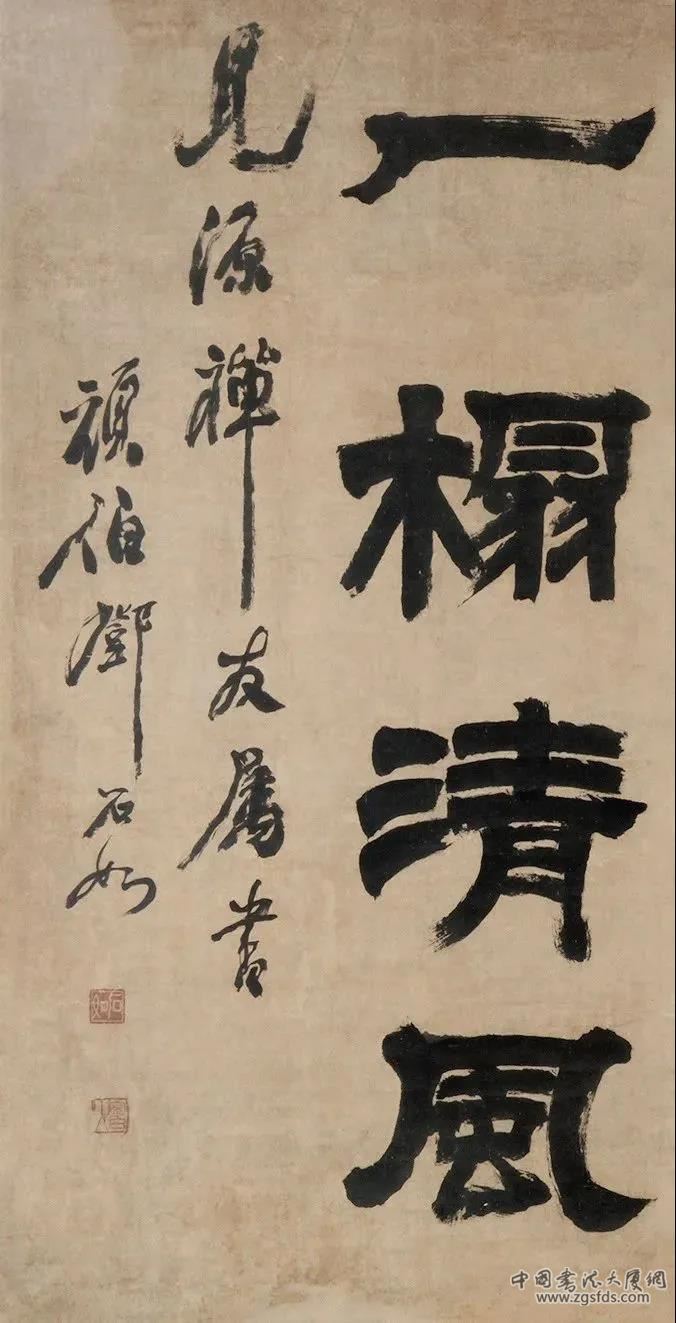 一榻清風
見源禪友屬書
頑伯鄧石如
石如
中国书法大厦網
www.zgsfds.com